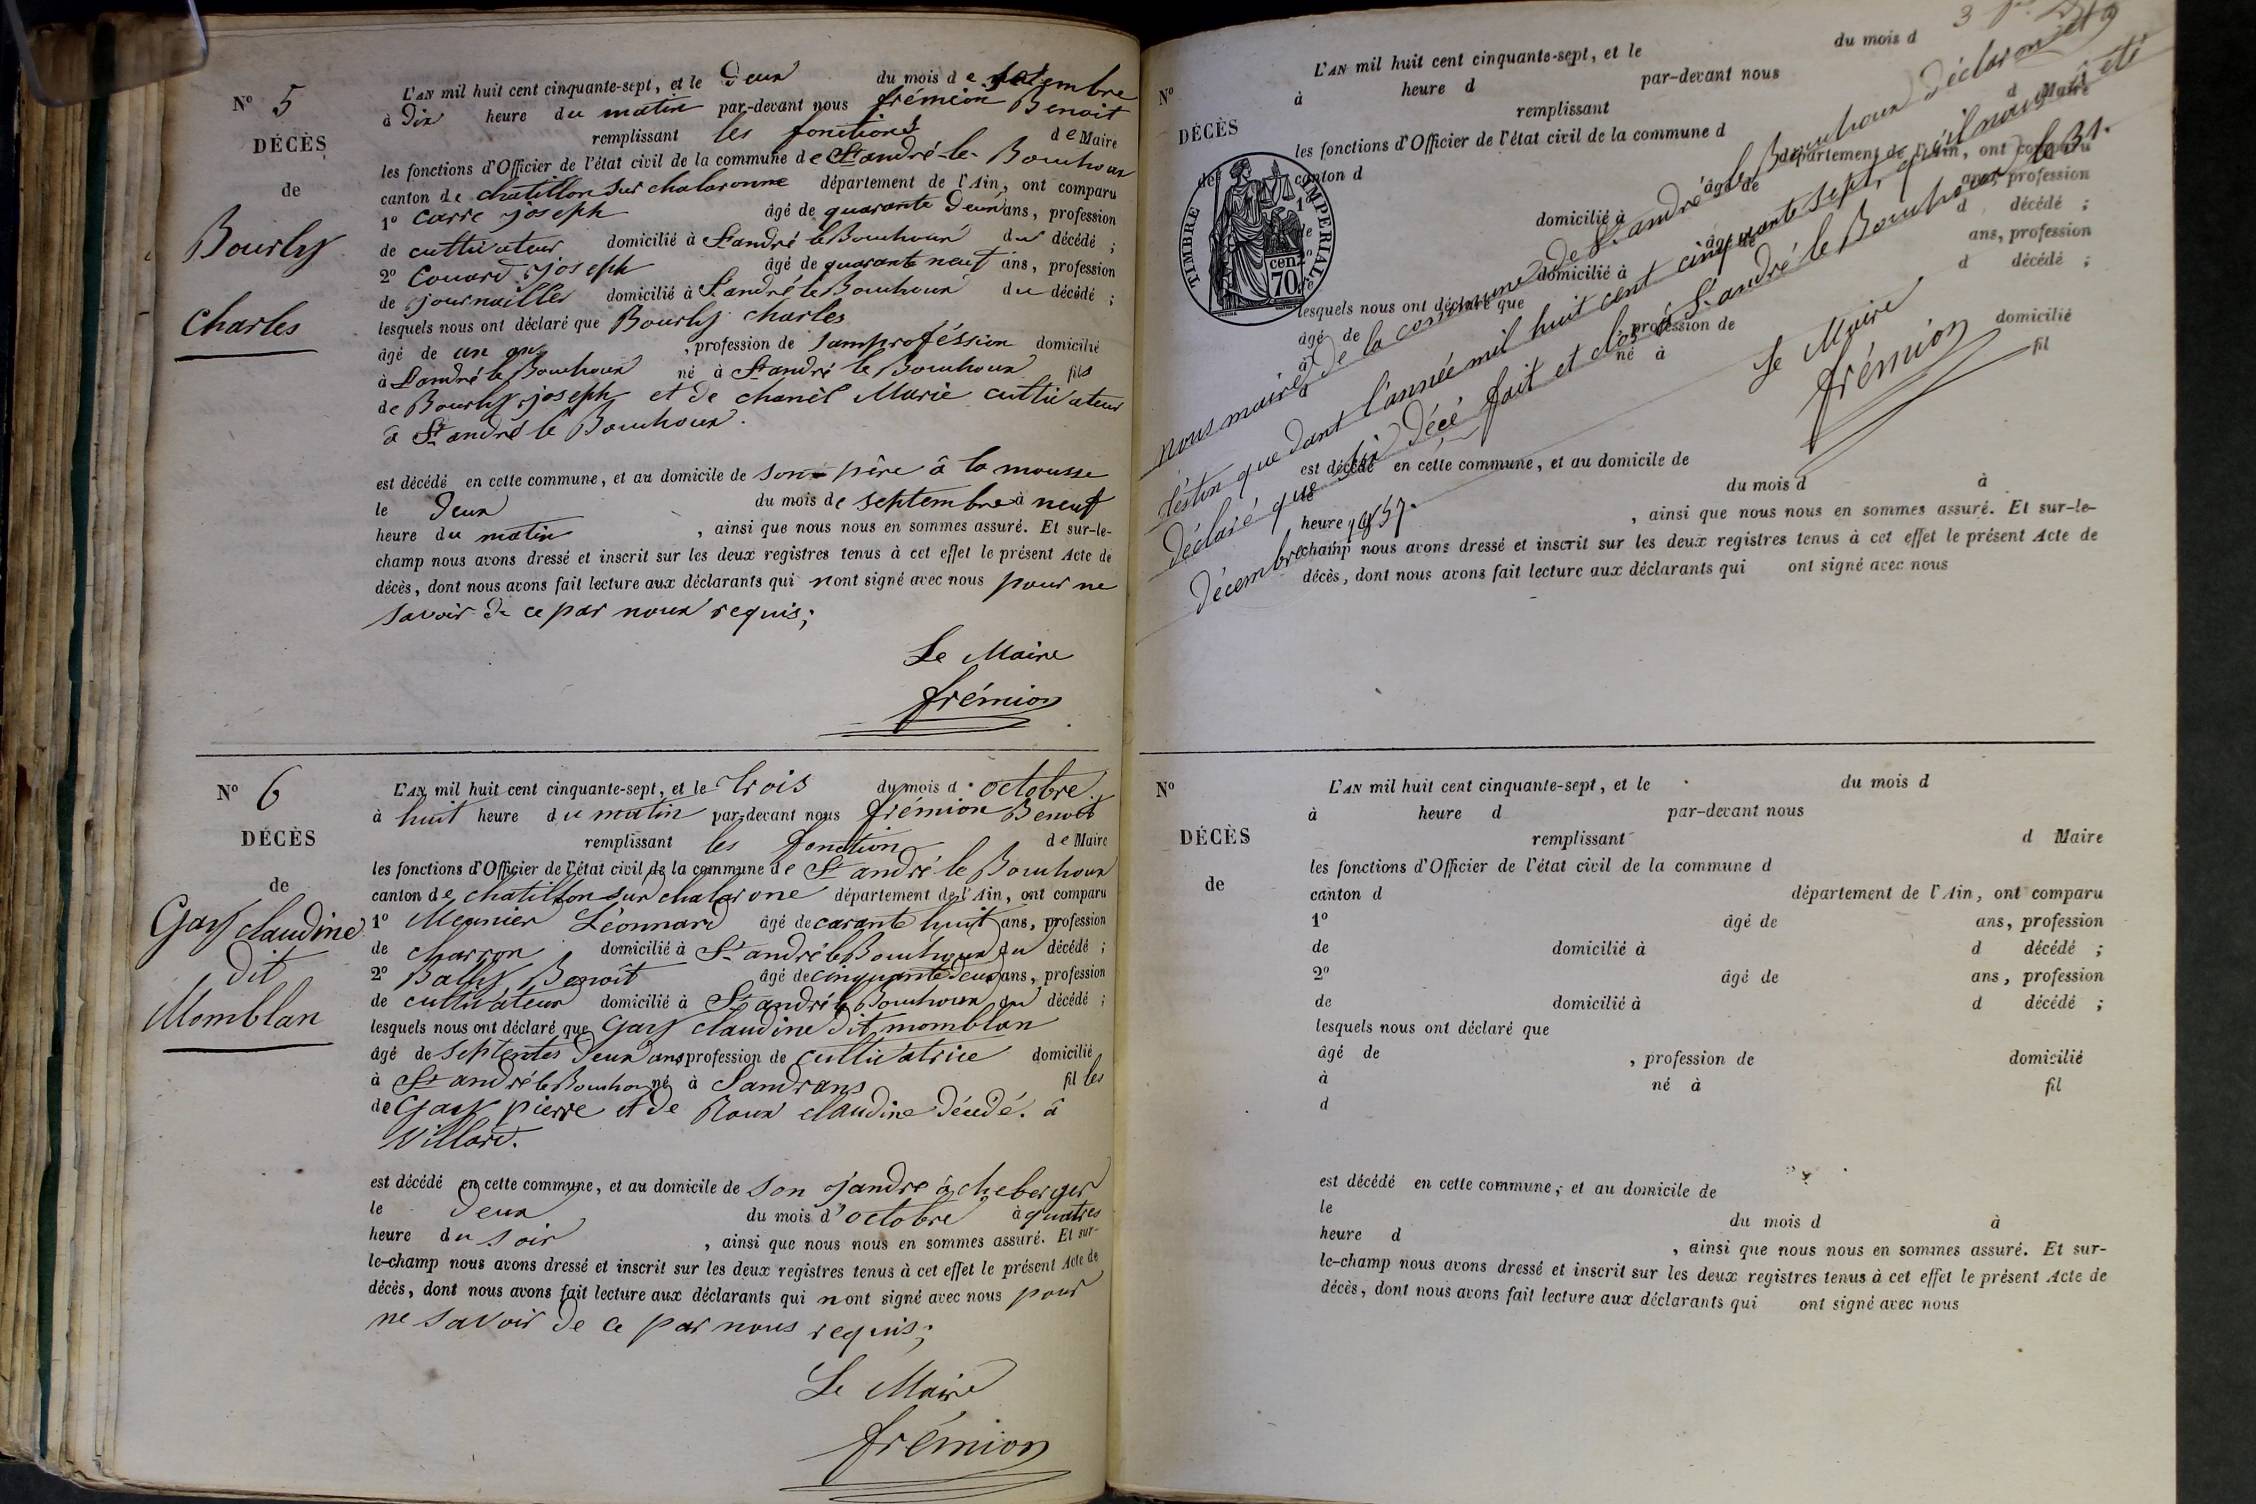 N° 5
DÉCÈS
de
Bourly
Charles
L'AN mil huit cent cinquante-sept, et le Deux du mois de septembre
à Dix heure du matin par-devant nous frémion Benoit
remplissant les fonctions de Maire
les fonctions d'Officier de l'état civil de la commune de St andré-le-Bouchoux
canton de chatillon sur chalaronne département de l'Ain, ont comparu
1° Carre joseph âgé de quarante Deux ans, profession
de cultivateur domicilié à St andré le Bouchoux du décédé ;
2° Couard joseph âgé de quarante neuf ans, profession
de journaillier domicilié à St andré le Bouchoux du décédé ;
lesquels nous ont déclaré que Bourly charles
âgé de un an , profession de samproféssion domicilié
à St andré le Bouchoux né à St andré le Bouchoux fils
de Bourly joseph et de chanel Marie cultivateur
à St andré le Bouchoux.
est décédé en cette commune, et au domicile de son père à la mousse
le Deux du mois de septembre à neuf
heure du matin , ainsi que nous nous en sommes assuré. Et sur-le-
champ nous avons dressé et inscrit sur les deux registres tenus à cet effet le présent Acte de
décès, dont nous avons fait lecture aux déclarants qui nont signé avec nous pour ne
savoir de ce par noux requis;
Le Maire
frémion
N° 6
DÉCÈS
de
Gay claudine
dit
Momblan
L'AN mil huit cent cinquante-sept, et le trois du mois d' octobre
à huit heure du matin par-devant nous frémion Benoit
remplissant les fonction de Maire
les fonctions d'Officier de l'état civil de la commune de St andré le Bouchoux
canton de chatillon sur chalarone département de l'Ain, ont comparu
1° Meunier Léonnard âgé de carante huit ans, profession
de charron domicilié à St andré le Bouchoux du décédé ;
2° Bally Benoît âgé de cinquante Deux ans, profession
de cultivateur domicilié à St andré le Bouchoux du décédé ;
lesquels nous ont déclaré que Gay claudine dit momblan
âgé de septentes Deux ans profession de cultivatrice domicilié
à St andré le Bouchou né à Sandrans fil les
de Gay pierre et de Roux claudine Décédé. à
Villard.
est décédé en cette commune, et au domicile de son jandre à cheberger
le deux du mois d'octobre à quatres
heure du soir , ainsi que nous nous en sommes assuré. Et sur-
le-champ nous avons dressé et inscrit sur les deux registres tenus à cet effet le présent Acte de
décès, dont nous avons fait lecture aux déclarants qui nont signé avec nous pour
ne savoir de ce par nous requis;
Le Maire
frémion
N°
DÉCÈS
de
TIMBRE IMPÉRIAL
70 cen.
L'AN mil huit cent cinquante-sept, et le du mois d
à heure d par-devant nous
remplissant d Maire
les fonctions d'Officier de l'état civil de la commune d
canton d département de l'Ain, ont comparu
1° âgé de ans, profession
de domicilié à d décédé ;
2° âgé de ans, profession
de domicilié à d décédé ;
lesquels nous ont déclaré que
âgé de , profession de domicilié
à né à fil
d
est décédé en cette commune, et au domicile de
le du mois d à
heure d , ainsi que nous nous en sommes assuré. Et sur-le-
champ nous avons dressé et inscrit sur les deux registres tenus à cet effet le présent Acte de
décès, dont nous avons fait lecture aux déclarants qui ont signé avec nous
nous maire de la commune de St andré le Bouchoux déclarons
que dant l'année mil huit cent cinquante sept, qu'il nous a été
déclaré que six décé fait et clos à St andré le Bouchoux le 31.
décembre 1857.
Le Maire
frémion
N°
DÉCÈS
de
L'AN mil huit cent cinquante-sept, et le du mois d
à heure d par-devant nous
remplissant d Maire
les fonctions d'Officier de l'état civil de la commune d
canton d département de l'Ain, ont comparu
1° âgé de ans, profession
de domicilié à d décédé ;
2° âgé de ans, profession
de domicilié à d décédé ;
lesquels nous ont déclaré que
âgé de , profession de domicilié
à né à fil
d
est décédé en cette commune, et au domicile de
le du mois d à
heure d , ainsi que nous nous en sommes assuré. Et sur-
le-champ nous avons dressé et inscrit sur les deux registres tenus à cet effet le présent Acte de
décès, dont nous avons fait lecture aux déclarants qui ont signé avec nous